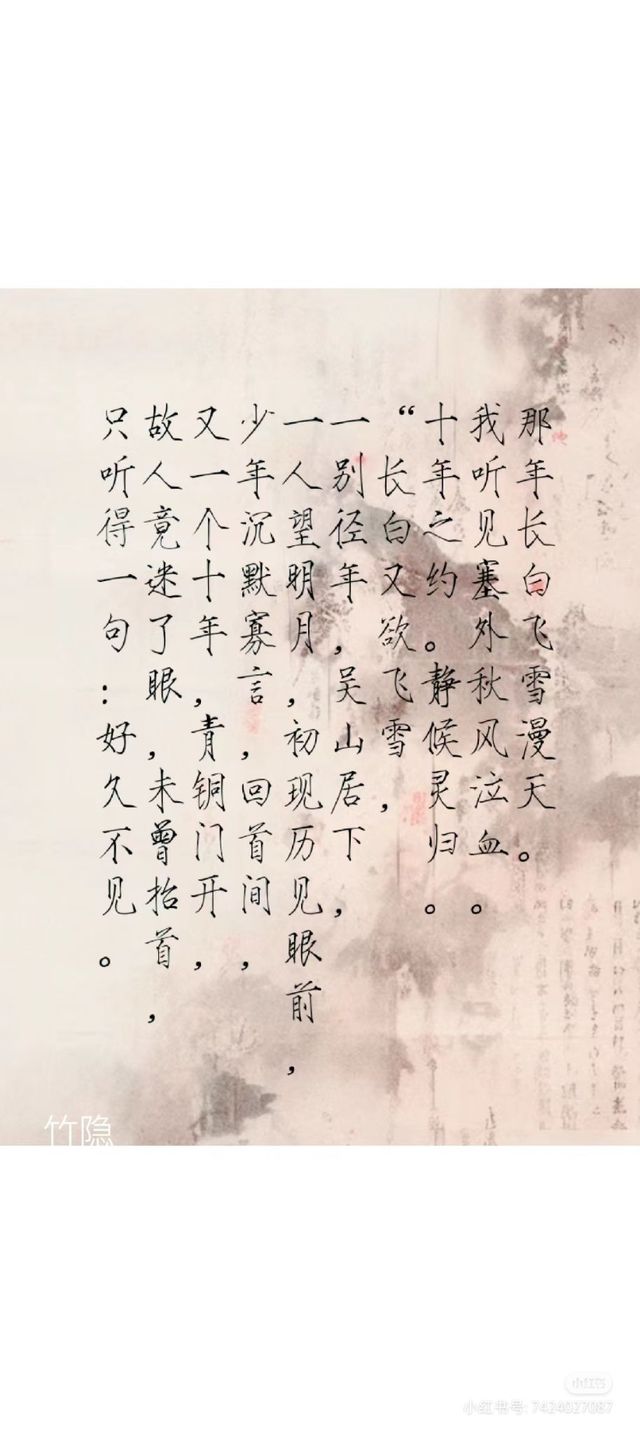 那年长白飞雪漫天。
我听见塞外秋风泣血。
十年之约。静候灵归。
“长白又欲飞雪，
一别径年，吴山居下，
一人望明月，初现历见眼前，
少年沉默寡言，回首间，
又一个十年，青铜门开，
故人竟迷了眼，未曾抬首，
只听得一句：好久不见。
竹隐
小红书
小红书号: 7424027087